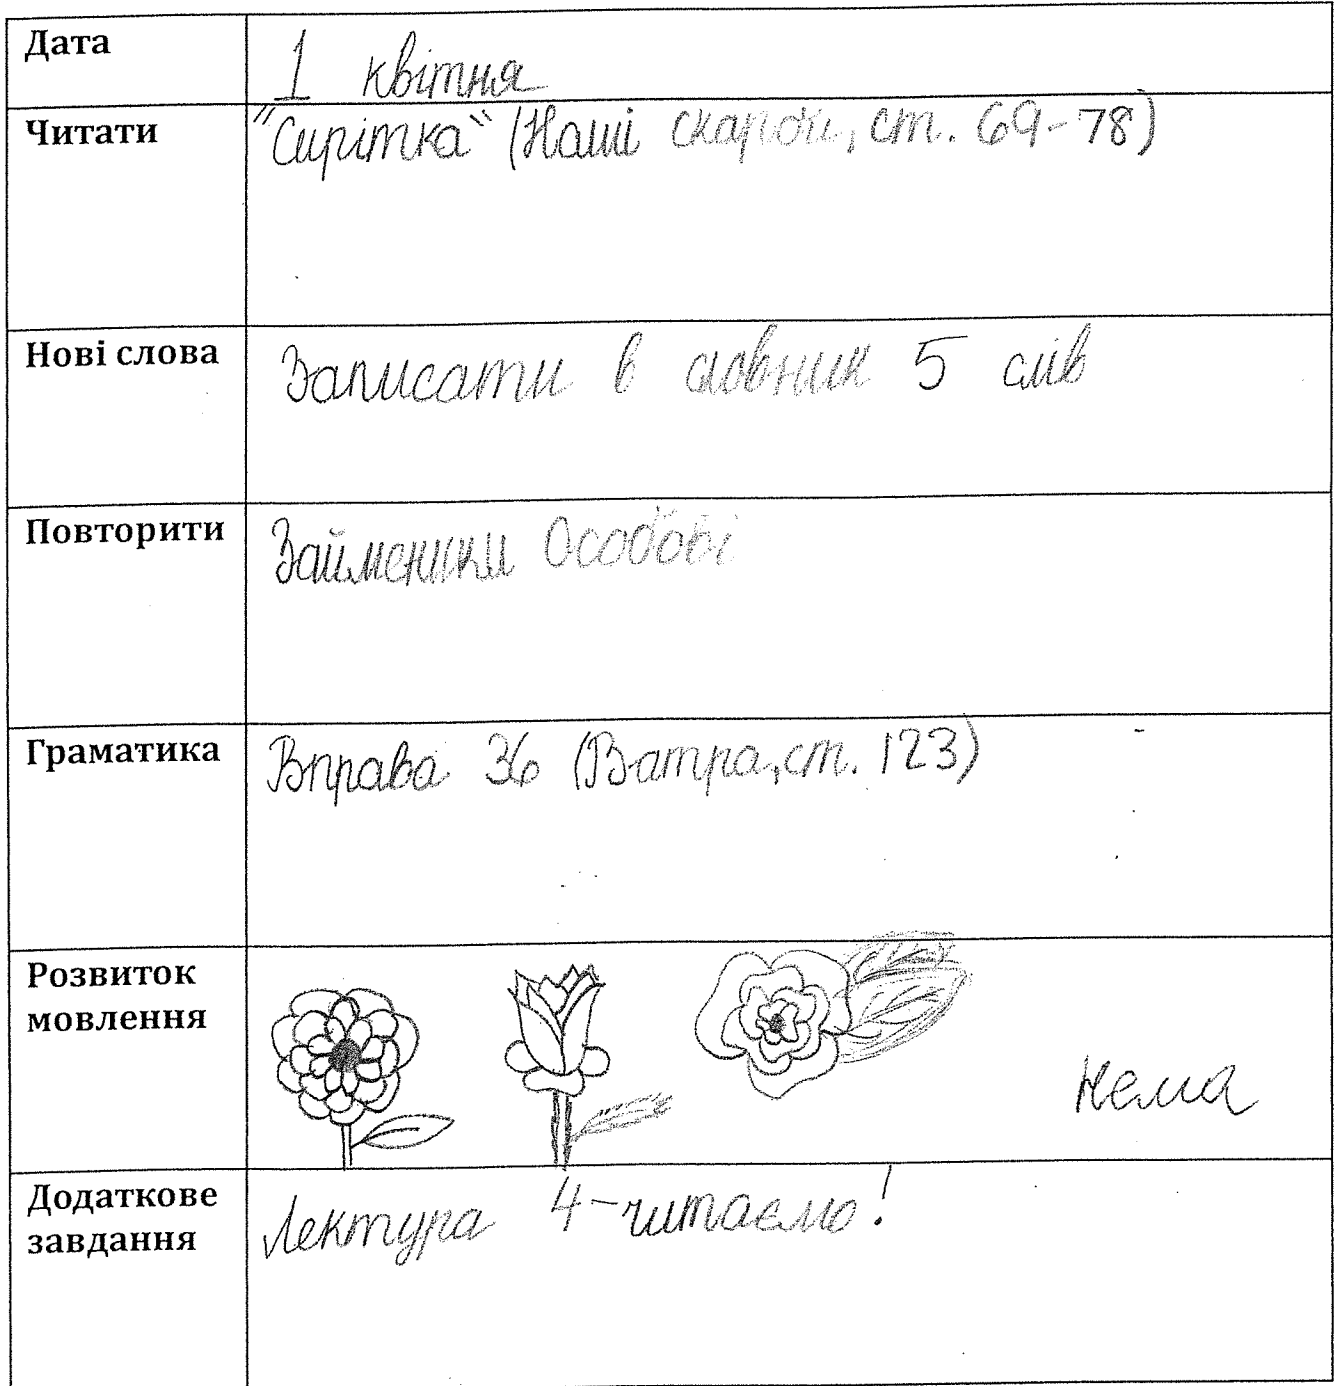 Дата
1 квітня
Читати
"Сирітка" (Наші скарби, ст. 69-78)
Нові слова
Записати в словник 5 слів
Повторити
Займенники Особові
Граматика
Вправа 36 (Ватра, ст. 123)
Розвиток
мовлення
нема
Додаткове
завдання
Лектура 4-читаємо!